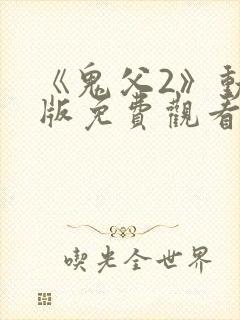 《鬼父2》動
版免費觀看
喫光全世界